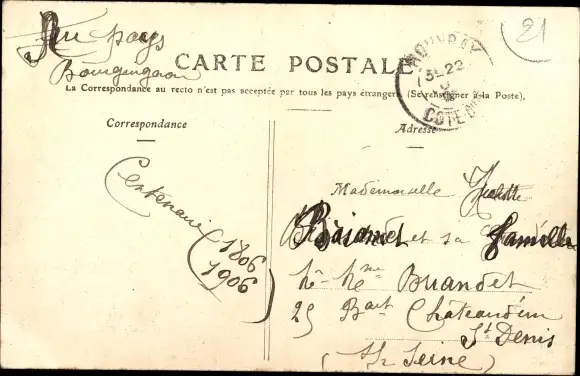 Au pays
Bourguignon
21
CARTE POSTALE
La Correspondance au recto n'est pas acceptée par tous les pays étrangers. (Se renseigner à la Poste).
ROUVRAY
22
COTE D'OR
Correspondance
Adresse
Centenaire (1806
1906)
Mademoiselle Juliette
et sa famille
Mr Mme Briandet
25 Bart Châteaudun
St Denis
(Seine)